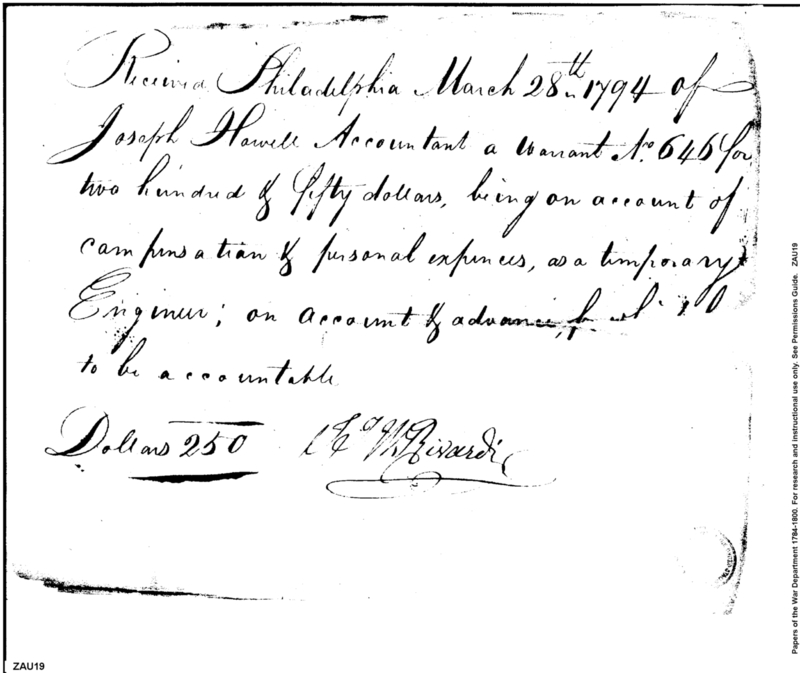 Received Philadelphia March 28th 1794 of
Joseph Howell Accountant a warrant No. 646 for
two hundred & fifty dollars, being on account of
compensation & personal expences, as a temporary
Engineer; on account & advance,
to be accountable
Dollars 250 Rivardi
ZAU19
Papers of the War Department 1784-1800. For research and instructional use only. See Permissions Guide. ZAU19